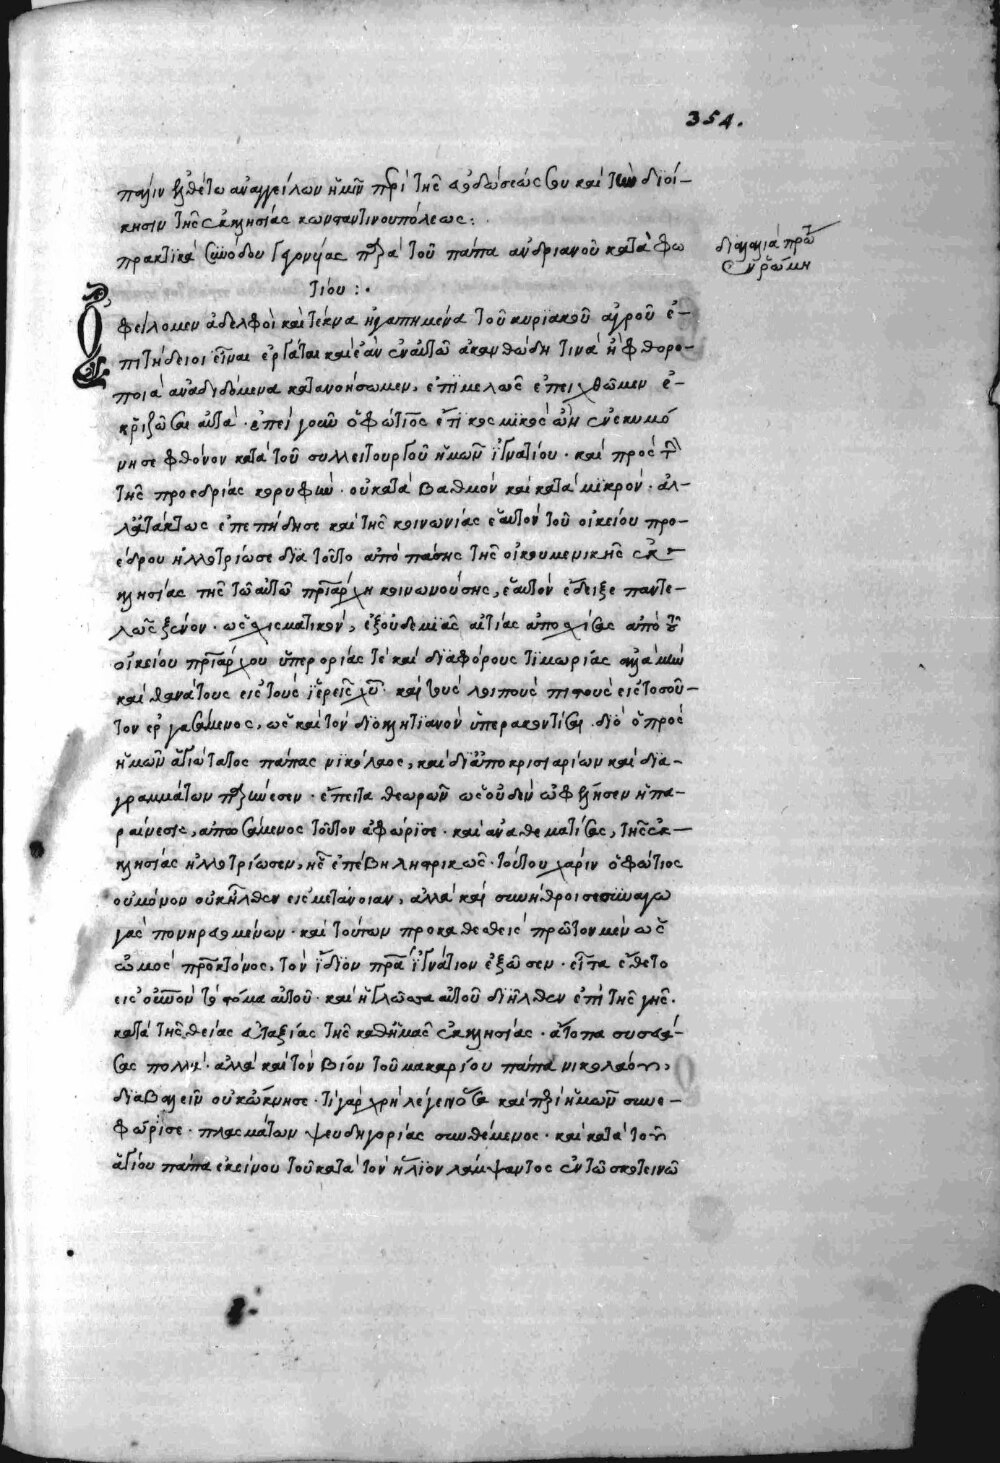 354.
πάλιν ἐλθέτω ἀναγγέλων ἡμῖν περὶ τῆς ὁδώσεώς σου καὶ τὴν διοί-
κησιν τῆς ἐκκλησίας κωνσταντινουπόλεως:
πρακτικὰ συνόδου γεγονυίας παρὰ τοῦ πάπα ἀνδριανοῦ κατὰ φω
τίου :·
διαλαλιὰ πρώτ
ἐν ῥώμη
Ὀφείλομεν ἀδελφοὶ καὶ τέκνα ἠγαπημένα τοῦ κυριακοῦ ἀγροῦ ἐ-
πιτήδειοι εἶναι ἐργάται καὶ ἐὰν ἐν αὐτῶ ἀκανθώδη τινὰ ἢ φθορο-
ποιὰ ἀναδιδόμενα κατανοήσωμεν, ἐπιμελῶς ἐπειχθῶμεν ἐ-
κριζῶσαι αὐτά· ἐπεὶ γοῦν ὁ φώτιος ἔτι κοσμικὸς ὢν ἐνεκυμό
νησε φθόνον κατὰ τοῦ συλλειτουργοῦ ἡμῶν ἰγνατίου· καὶ πρὸς τὴν
τῆς προεδρίας κορυφὴν· οὐ κατὰ βαθμὸν καὶ κατὰ μικρόν· ἀλ-
λ' ἀτάκτως ἐπεπήδησε καὶ τῆς κοινωνίας ἑαυτὸν τοῦ οἰκείου προ-
έδρου ἠλλοτρίωσε διὰ τοῦτο ἀπὸ πάσης τῆς οἰκουμενικῆς ἐκ-
κλησίας τῆς τῶ αὐτῶ πριάρχη κοινωνούσης, ἑαυτὸν ἔδειξε παντε-
λῶς ξένον· ὡς σχισματικόν, ἐξ οὐδεμιᾶς αἰτίας ἀποσχίσας ἀπὸ τοῦ
οἰκείου πριάρχου ὑπερορίας τὲ καὶ διαφόρους τιμωρίας ἀλλὰ μὴν
καὶ θανάτους εἰς τοὺς ἱερεῖς χῦ· καὶ τοὺς λοιποὺς πιστοὺς εἰς τοσοῦ-
τον ἐργασάμενος, ὡς καὶ τὸν διοκλητιανὸν ὑπερακοντίσαι· διὸ ὁ πρὸς
ἡμῶν ἁγιώτατος πάπας νικόλαος, καὶ δι' ἀποκρισιαρίων καὶ διὰ-
γραμμάτων παρήνεσεν· ἔπειτα θεωρῶν ὡς οὐδὲν ὠφέλησεν ἡ πα-
ραίνεσις, ἀπωσάμενος τοῦτον ἀφώρισε· καὶ ἀναθεματίσας, τῆς ἐκ-
κλησίας ἠλλοτρίωσεν, ἧς ἐπέβη ληστρικῶς· τούτου χάριν ὁ φώτιος
οὐ μόνον οὐκ ἦλθεν εἰς μετάνοιαν, ἀλλὰ καὶ συνήθροισε συναγω
γὰς πονηρευομένων· καὶ τούτων προκαθεσθεὶς πρῶτον μὲν ὡς
ὠμὸς πρακτόνος, τὸν ἴδιον πρα ἰγνάτιον ἐξῶσεν· εἶτα ἔθετο
εἰς οὐνὸν τὸ στόμα αὐτοῦ· καὶ ἡ γλῶσσα αὐτοῦ διῆλθεν ἐπὶ τῆς γῆς·
κατὰ τῆς θείας εὐταξίας τῆς καθ' ἡμᾶς ἐκκλησίας· ἄτοπα συσκευά-
σας πολλά· ἀλλὰ καὶ τὸν βίον τοῦ μακαρίου πάπα νικολάου,
διαβαλεῖν οὐκ ὤκνησε· τί γὰρ χρὴ λέγειν ὅσα καὶ περὶ ἡμῶν συνε-
φώρισε· πλασμάτων ψευδηγορίας συνθέμενος· καὶ κατὰ τοῦ
ἁγίου πάπα ἐκείνου τοῦ κατὰ τὸν ἥλιον λάμψαντος ἐν τῶ σκοτεινῶ